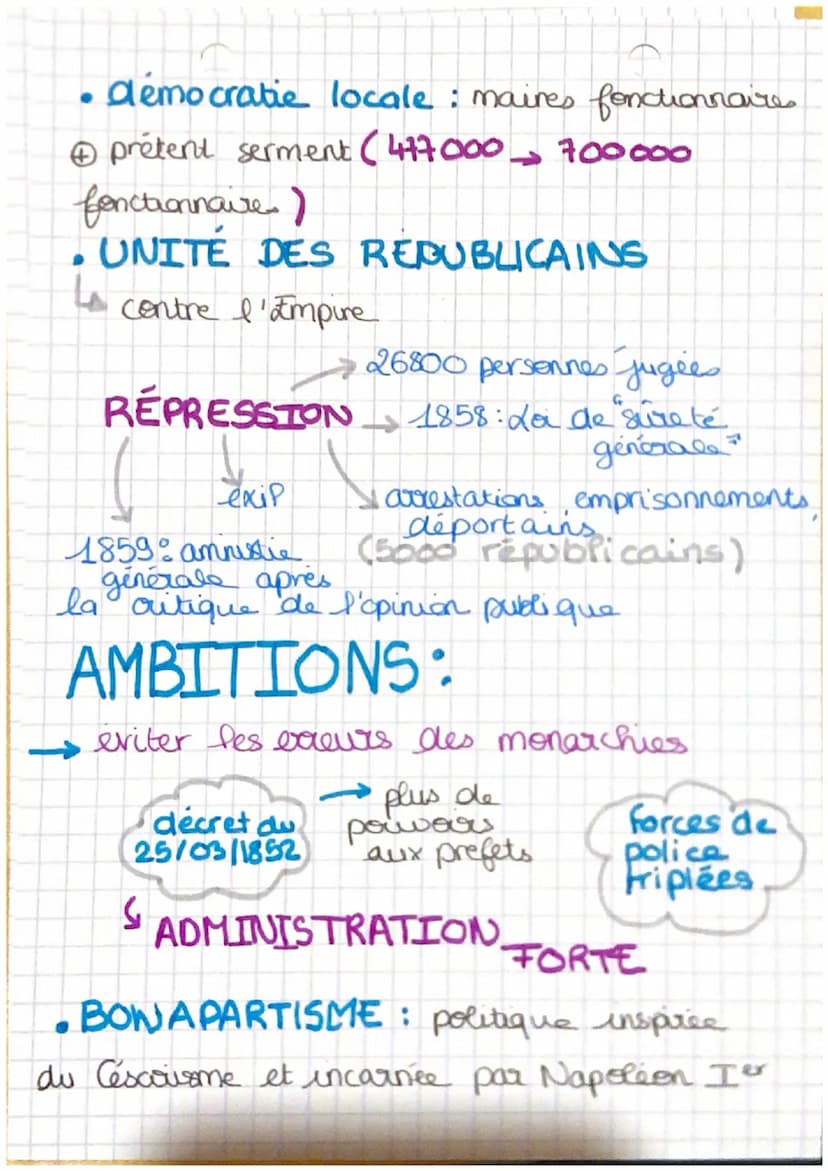 • démocratie locale : maires fonctionnaires
⊕ prétent serment (477000 → 700000
fonctionnaires)
• UNITÉ DES RÉPUBLICAINS
↳ contre l'Empire
→ 26800 personnes jugées
RÉPRESSION → 1858 : Loi de "sûreté
générale"
exil
arrestations, emprisonnements,
déportains
(5000 républicains)
1859 : amnistie
générale après
la critique de l'opinion publique
AMBITIONS :
→ éviter les erreurs des monarchies
décret du
25/03/1852
→ plus de
pouvoirs
aux préfets
forces de
police
triplées
↳ ADMINISTRATION FORTE
• BONAPARTISME : politique inspirée
du Césarisme et incarnée par Napoléon Ier